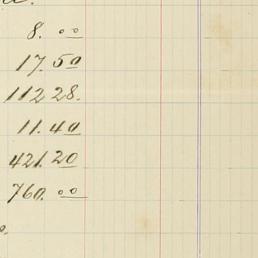 8. 00
17. 50
112 28.
11. 40
421. 20
760. 00